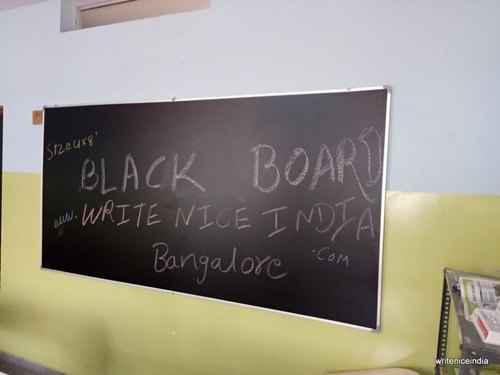 Size 4x8'
BLACK BOARD
www. WRITE NICE INDIA
.com
Bangalore
writeniceindia